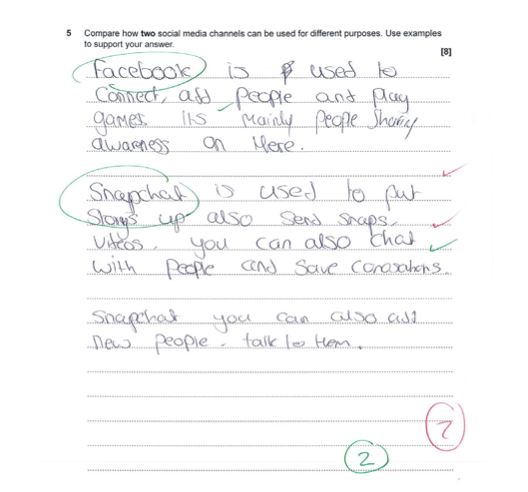 5 Compare how two social media channels can be used for different purposes. Use examples
to support your answer.
[8]
Facebook is used to
Connect, add people and play
games. Its mainly people sharing
awarness on Here.
Snapchat is used to put
Storys up also send snaps.
Videos. you can also chat
with people and save conasations.
Snapchat you can also add
new people - talk to them.
2